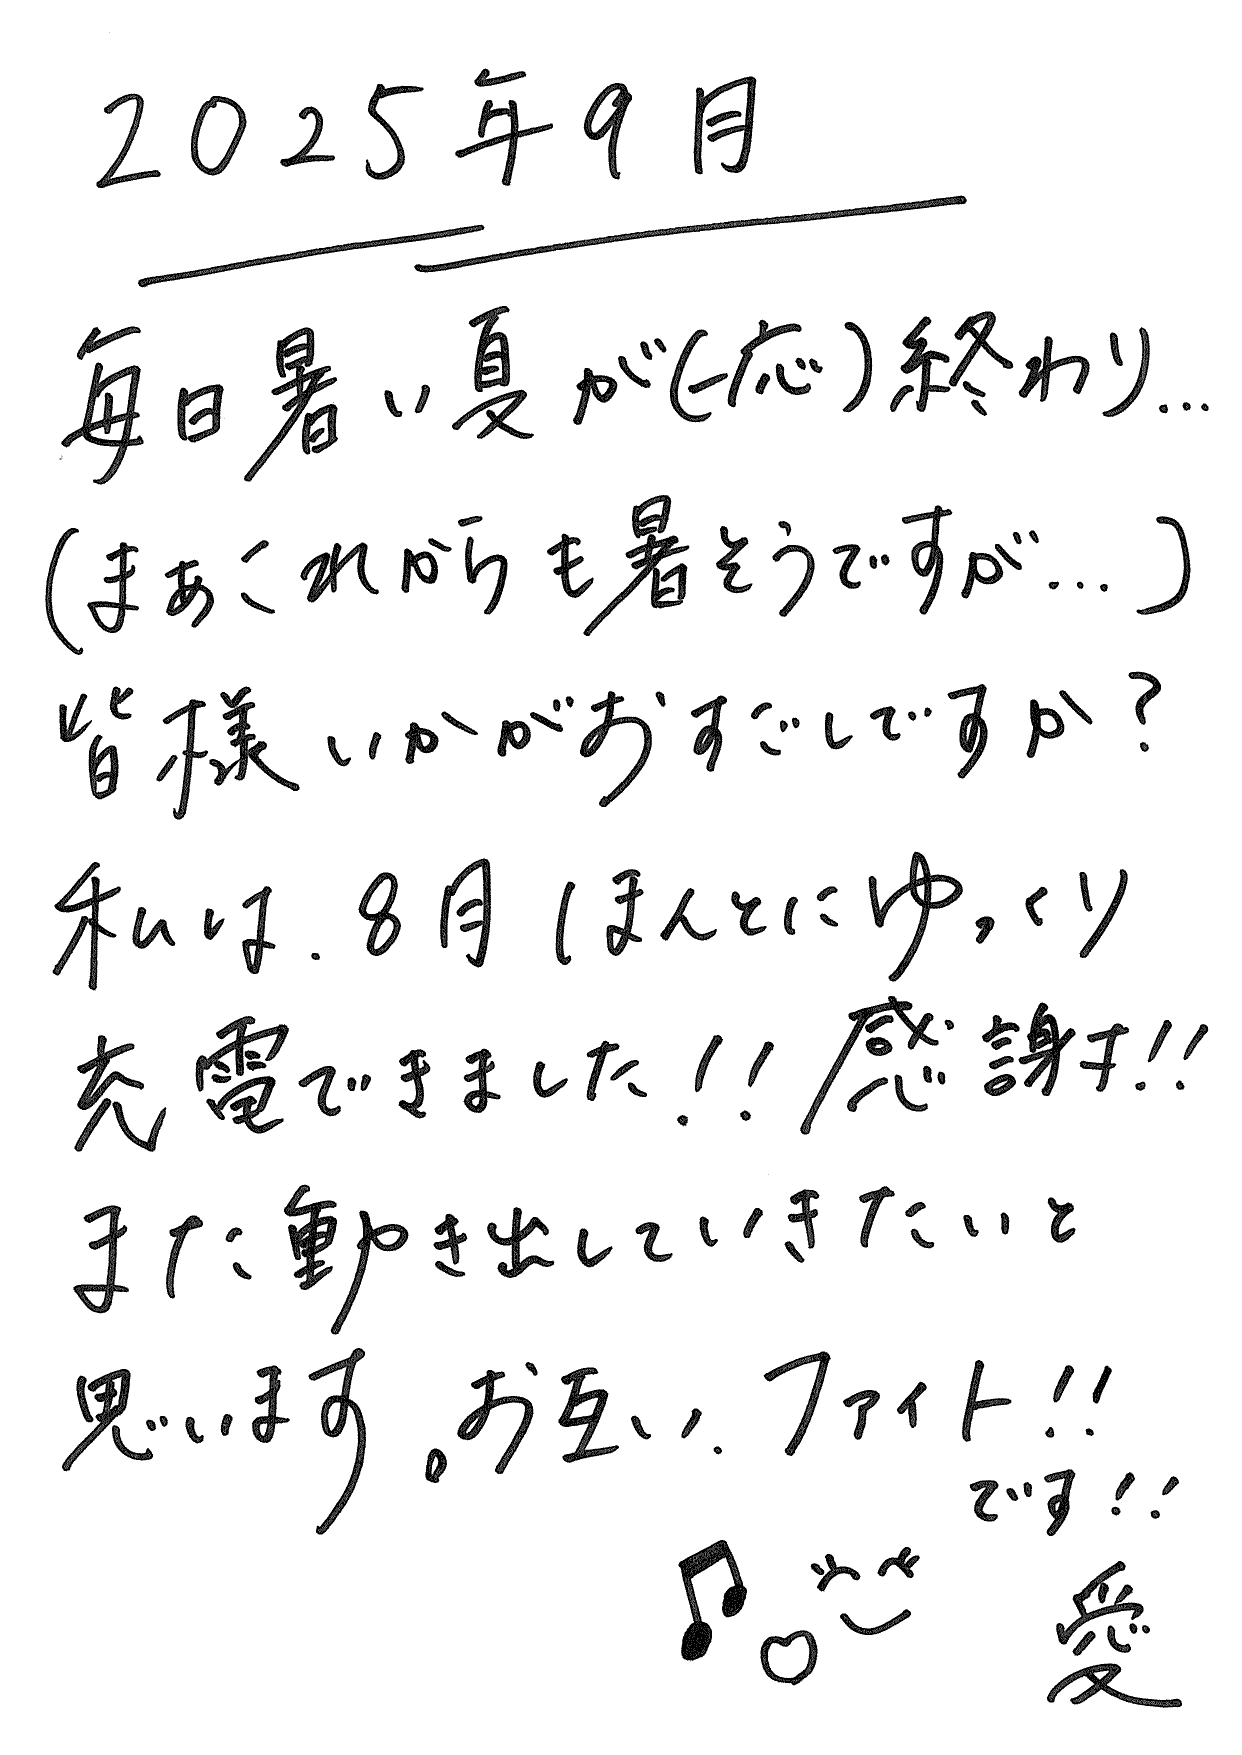 2025年9月
毎日暑い夏が(一応)終わり...
(まぁこれからも暑そうですが...)
皆様いかがおすごしですか?
私は、8月ほんとにゆっくり
充電できました!! 感謝す!!
また動き出していきたいと
思います。お互い、ファイト!!
です!!
愛